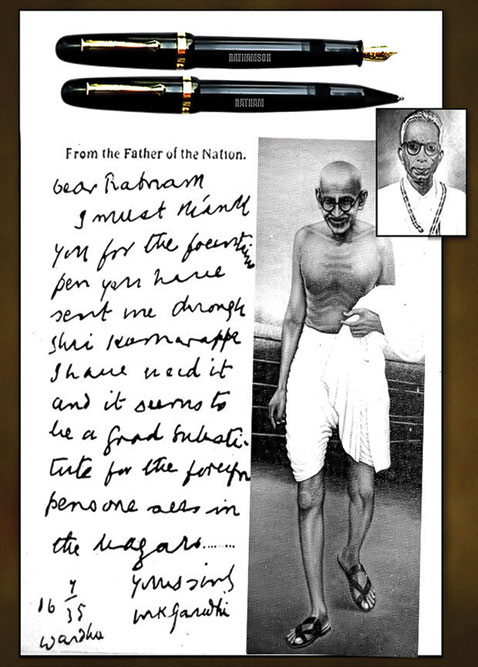 RATNAMSON
RATNAM
From the Father of the Nation.
Dear Ratnam
I must thank
you for the fountain
pen you have
sent me through
Shri Kumarappa
I have used it
and it seems to
be a good substi-
tute for the foreign
pens one sees in
the
yours
16 7/35 MKGandhi
Wardha